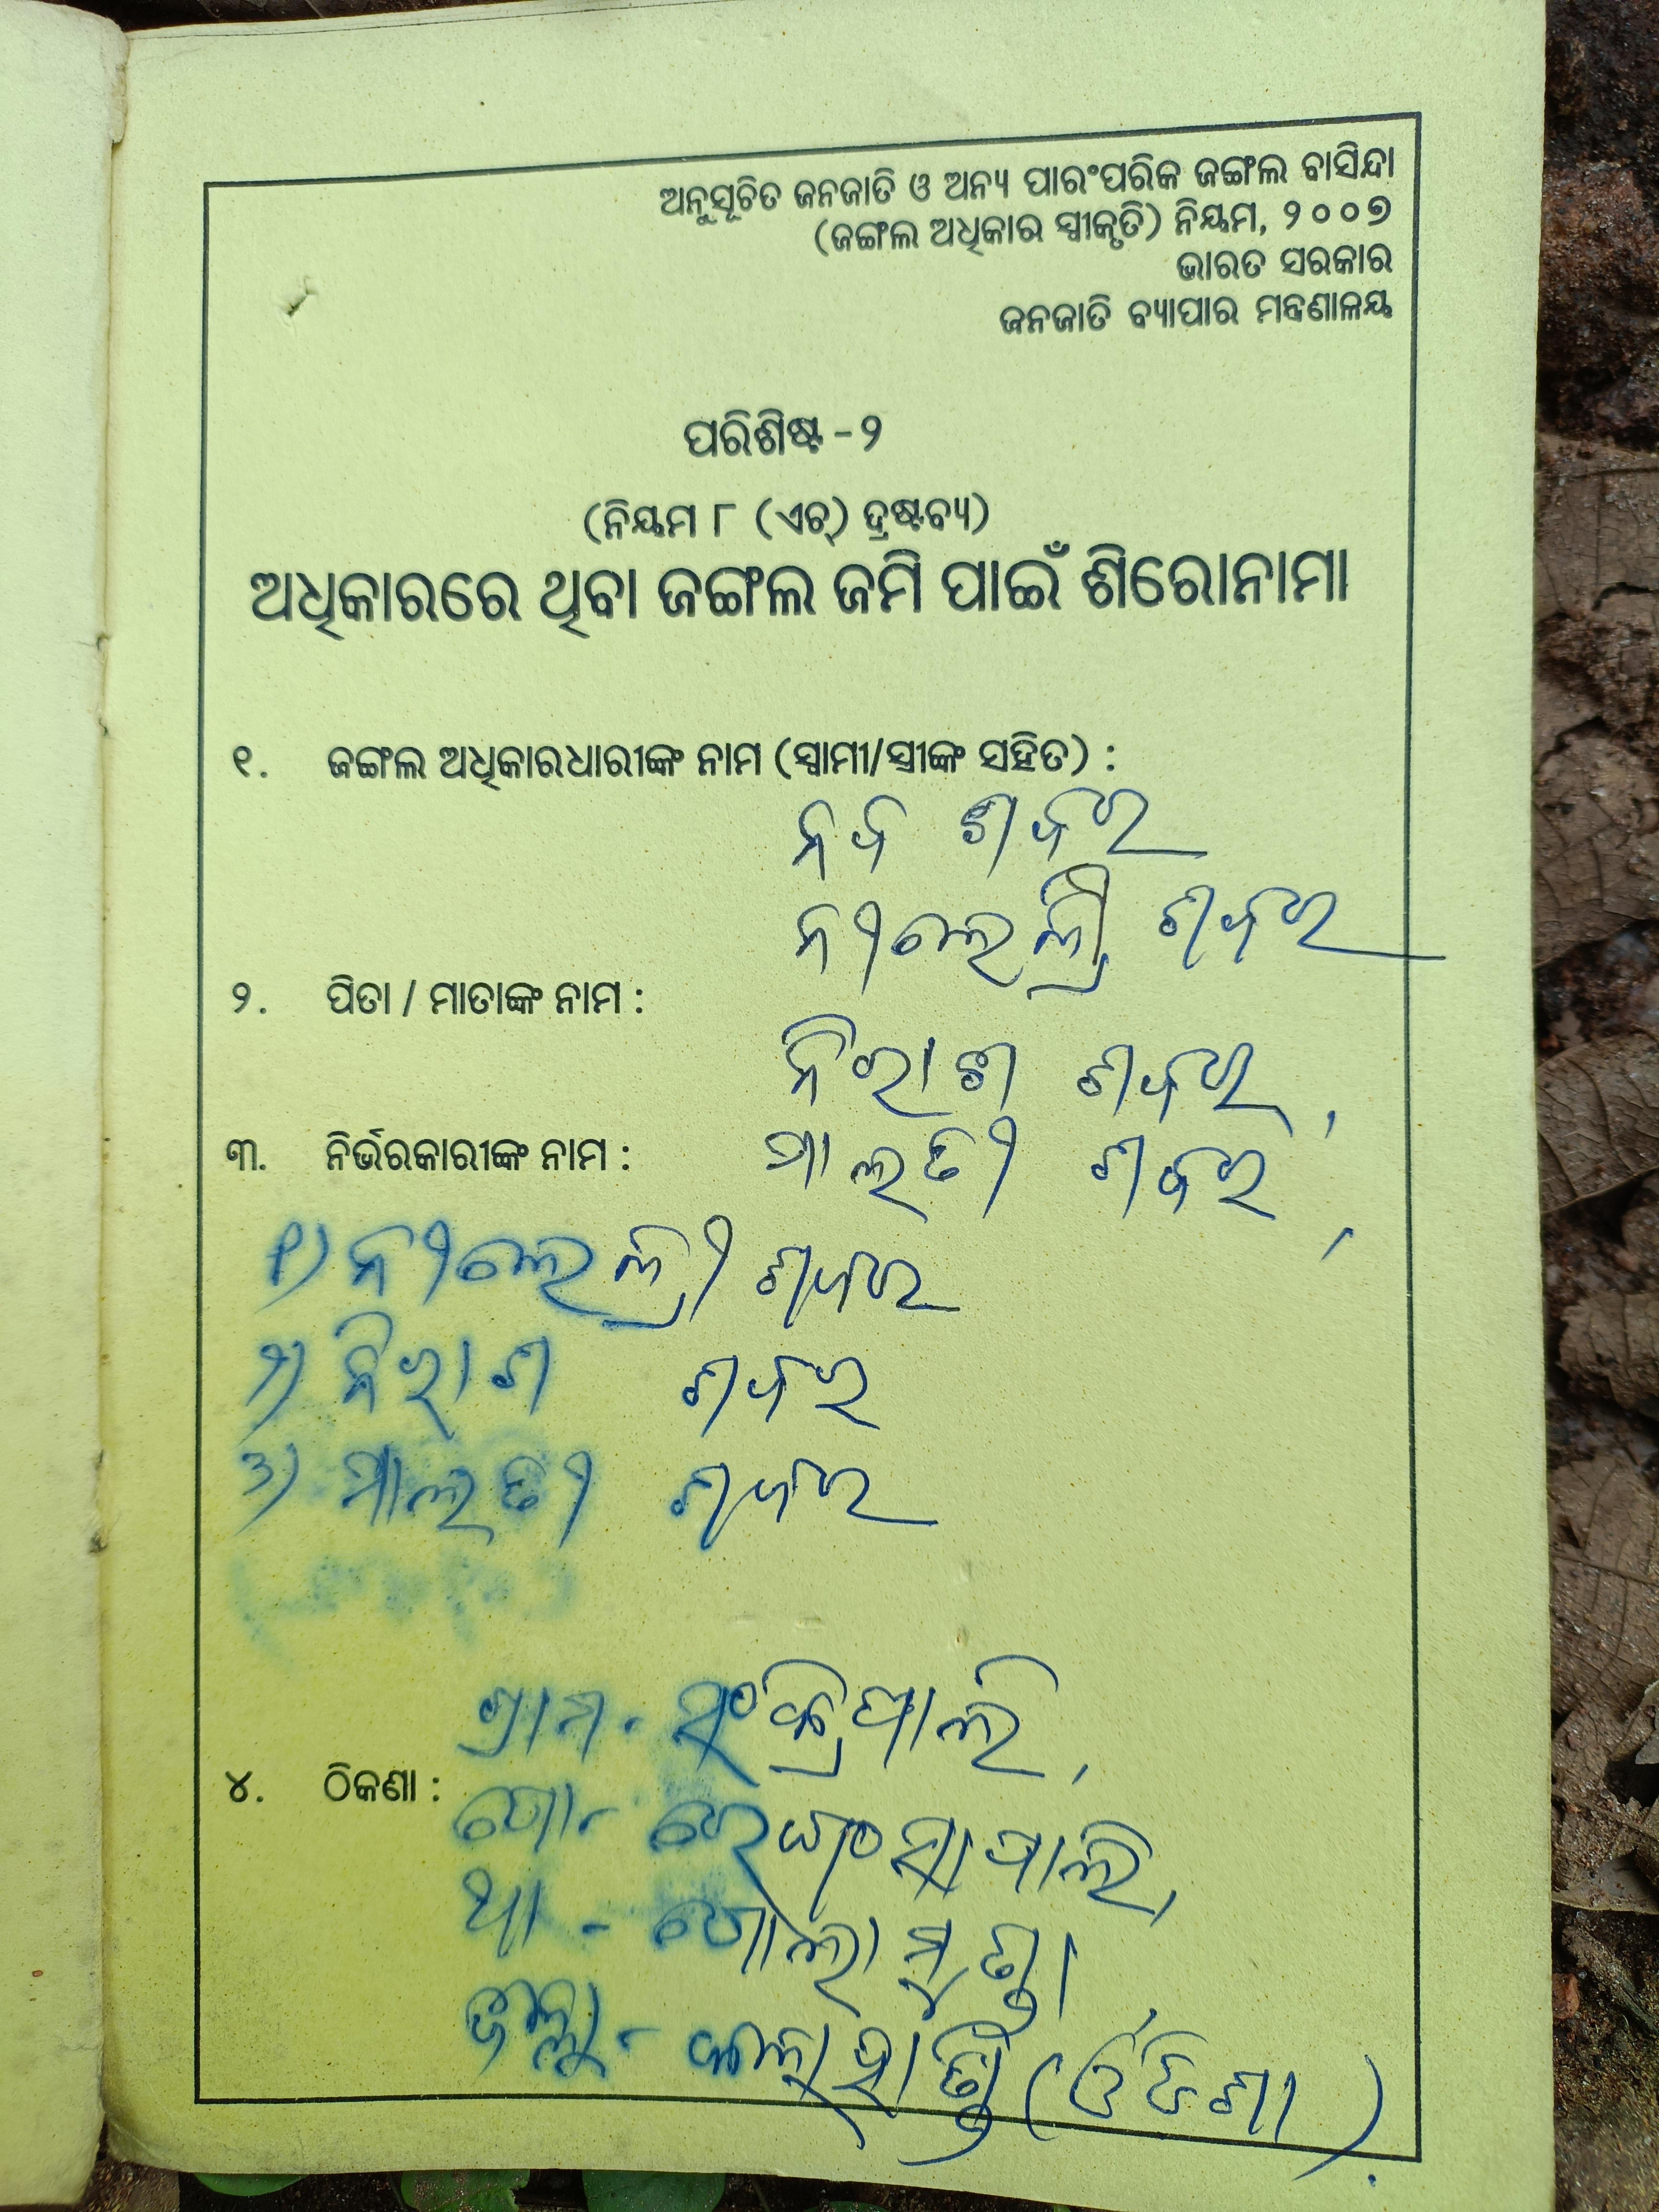 ଅନୁସୂଚିତ ଜନଜାତି ଓ ଅନ୍ୟ ପାରଂପରିକ ଜଙ୍ଗଲ ବାସିନ୍ଦା
(ଜଙ୍ଗଲ ଅଧିକାର ସ୍ୱୀକୃତି) ନିୟମ, ୨୦୦୭
ଭାରତ ସରକାର
ଜନଜାତି ବ୍ୟାପାର ମନ୍ତ୍ରଣାଳୟ
ପରିଶିଷ୍ଟ -୨
(ନିୟମ ୮ (ଏଚ୍) ଦ୍ରଷ୍ଟବ୍ୟ)
ଅଧିକାରରେ ଥିବା ଜଙ୍ଗଲ ଜମି ପାଇଁ ଶିରୋନାମା
୧. ଜଙ୍ଗଲ ଅଧିକାରଧାରୀଙ୍କ ନାମ (ସ୍ୱାମୀ/ସ୍ତ୍ରୀଙ୍କ ସହିତ) :
ଶବର
ଶବର
୨. ପିତା / ମାତାଙ୍କ ନାମ :
ନିରାଶ ଶବର,
୩. ନିର୍ଭରକାରୀଙ୍କ ନାମ : ମାଲତୀ ଶବର,
୧) ଶବର
୨) ନିରାଶ ଶବର
୩) ମାଲତୀ ଶବର
ଗ୍ରାମ-
୪. ଠିକଣା :
ପୋ-
ଥା - ଗୋଲାମୁଣ୍ଡା,
(ଓଡିଶା).